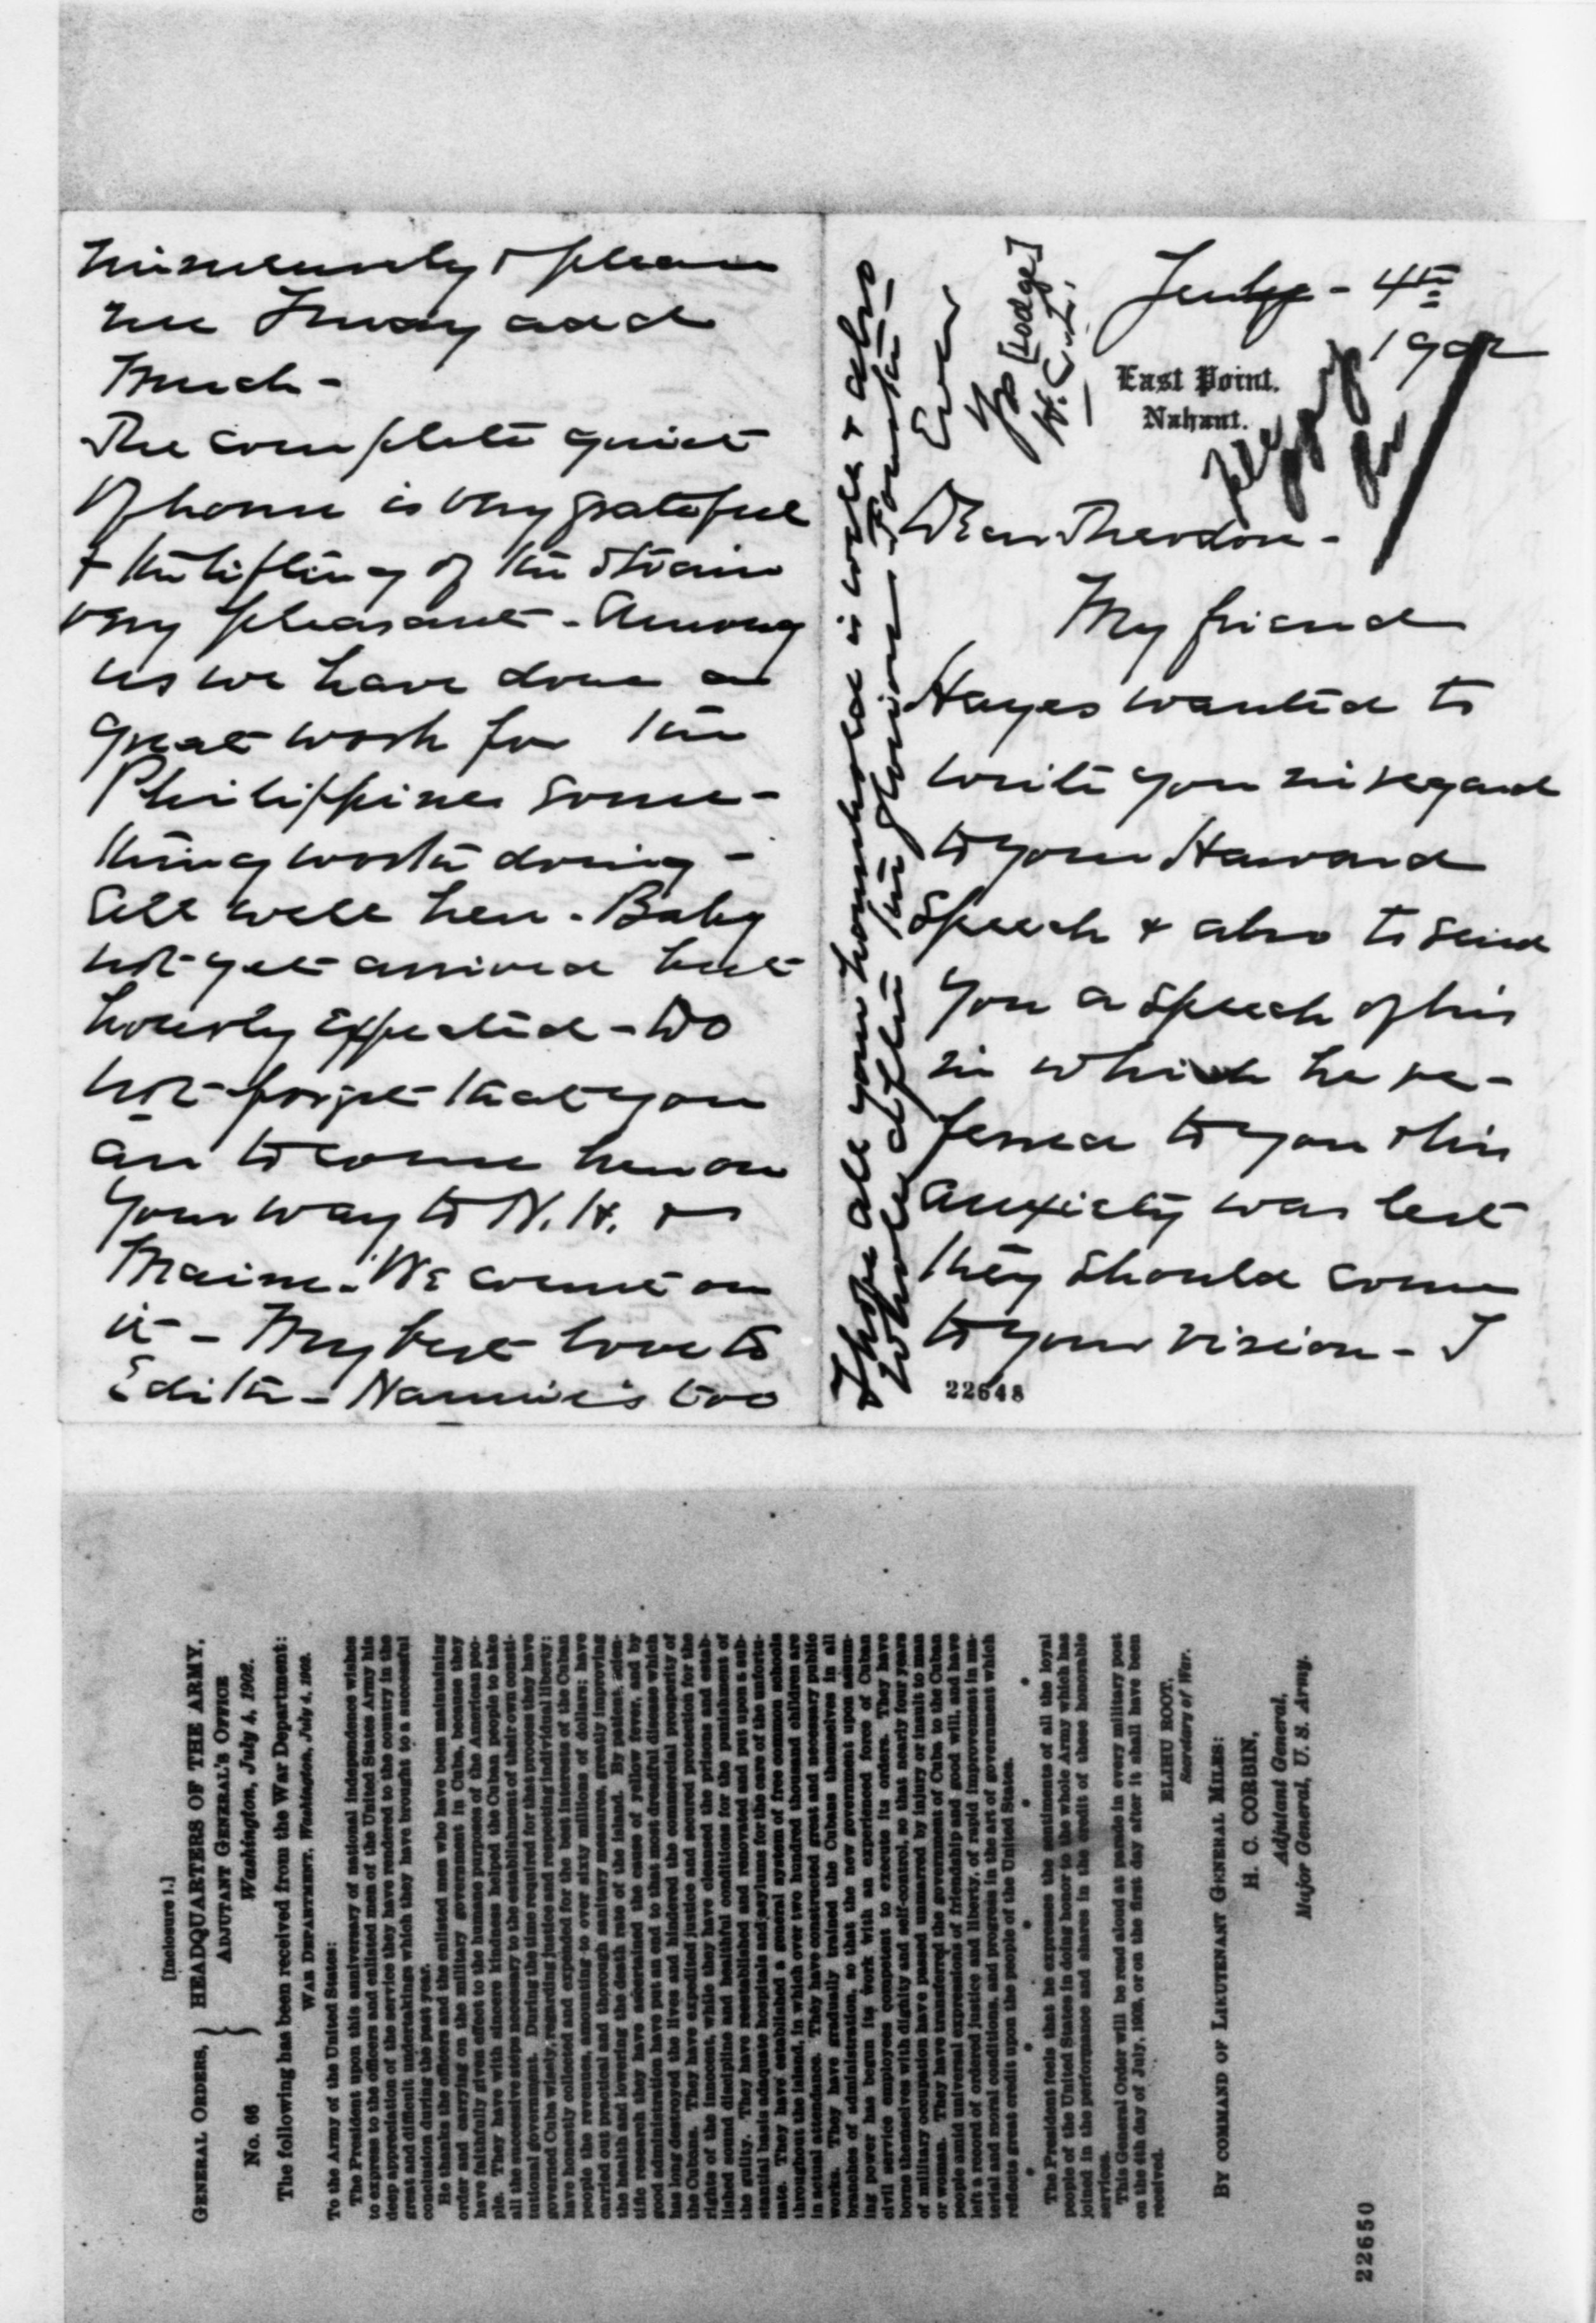 immensely & please
me I may add
much -
The complete quiet
of home is very grateful
& the lifting of the strain
very pleasant - Among
us we have done a
great work for the
Philippines some-
thing worth doing -
All well here - Baby
not yet arrived but
hourly expected - Do
not forget that you
are to come here on
your way to N. H. &
Maine - We count on
it - My best love to
Edith - Nannie's too
I hope all your household is well & also
whole after the glorious Fourth -
Ever
Yrs [Lodge]
H. C. L.
July - 4th
1902
East Point.
Nahant.
Dear Theodore -
My friend
Hayes wanted to
write you in regard
to your Harvard
Speech & also to send
you a speech of his
in which he re-
ferred to you & his
anxiety was lest
they should come
to your vision - I
22648
[Inclosure 1.]
GENERAL ORDERS, } HEADQUARTERS OF THE ARMY,
ADJUTANT GENERAL'S OFFICE
No. 66
Washington, July 4, 1902.
The following has been received from the War Department:
WAR DEPARTMENT, Washington, July 4, 1902.
To the Army of the United States:
The President upon this anniversary of national independence wishes
to express to the officers and enlisted men of the United States Army his
deep appreciation of the service they have rendered to the country in the
great and difficult undertakings which they have brought to a successful
conclusion during the past year.
He thanks the officers and the enlisted men who have been maintaining
order and carrying on the military government in Cuba, because they
have faithfully given effect to the humane purposes of the American peo-
ple. They have with sincere kindness helped the Cuban people to take
all the successive steps necessary to the establishment of their own consti-
tutional government. During the time required for that process they have
governed Cuba wisely, regarding justice and respecting individual liberty;
have honestly collected and expended for the best interests of the Cuban
people the revenues, amounting to over sixty millions of dollars; have
carried out practical and thorough sanitary measures, greatly improving
the health and lowering the death rate of the island. By patient, scien-
tific research they have ascertained the cause of yellow fever, and by
good administration have put an end to that most dreadful disease which
has long destroyed the lives and hindered the commercial prosperity of
the Cubans. They have expedited justice and secured protection for the
rights of the innocent, while they have cleansed the prisons and estab-
lished sound discipline and healthful conditions for the punishment of
the guilty. They have reestablished and renovated and put upon a sub-
stantial basis adequate hospitals and asylums for the care of the unfortu-
nate. They have established a general system of free common schools
throughout the island, in which over two hundred thousand children are
in actual attendance. They have constructed great and necessary public
works. They have gradually trained the Cubans themselves in all
branches of administration, so that the new government upon assum-
ing power has begun its work with an experienced force of Cuban
civil service employees competent to execute its orders. They have
borne themselves with dignity and self-control, so that nearly four years
of military occupation have passed unmarred by injury or insult to man
or woman. They have transferred the government of Cuba to the Cuban
people amid universal expressions of friendship and good will, and have
left a record of ordered justice and liberty, of rapid improvement in ma-
terial and moral conditions, and progress in the art of government which
reflects great credit upon the people of the United States.
* * * * * *
The President feels that he expresses the sentiments of all the loyal
people of the United States in doing honor to the whole Army which has
joined in the performance and shares in the credit of these honorable
services.
This General Order will be read aloud at parade in every military post
on the 4th day of July, 1902, or on the first day after it shall have been
received.
ELIHU ROOT,
Secretary of War.
BY COMMAND OF LIEUTENANT GENERAL MILES:
H. C. CORBIN,
Adjutant General,
Major General, U. S. Army.
22650